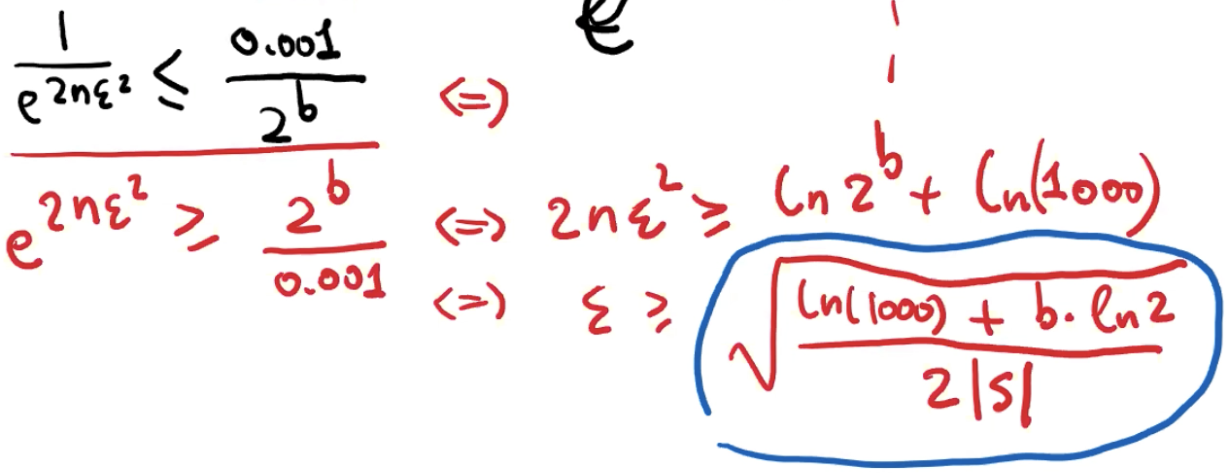 e
1/e^{2nε²} ≤ 0.001/2^b <=>
e^{2nε²} ≥ 2^b/0.001 <=> 2nε² ≥ ln 2^b + ln(1000)
<=> ε ≥ √((ln(1000) + b · ln 2)/(2|S|))